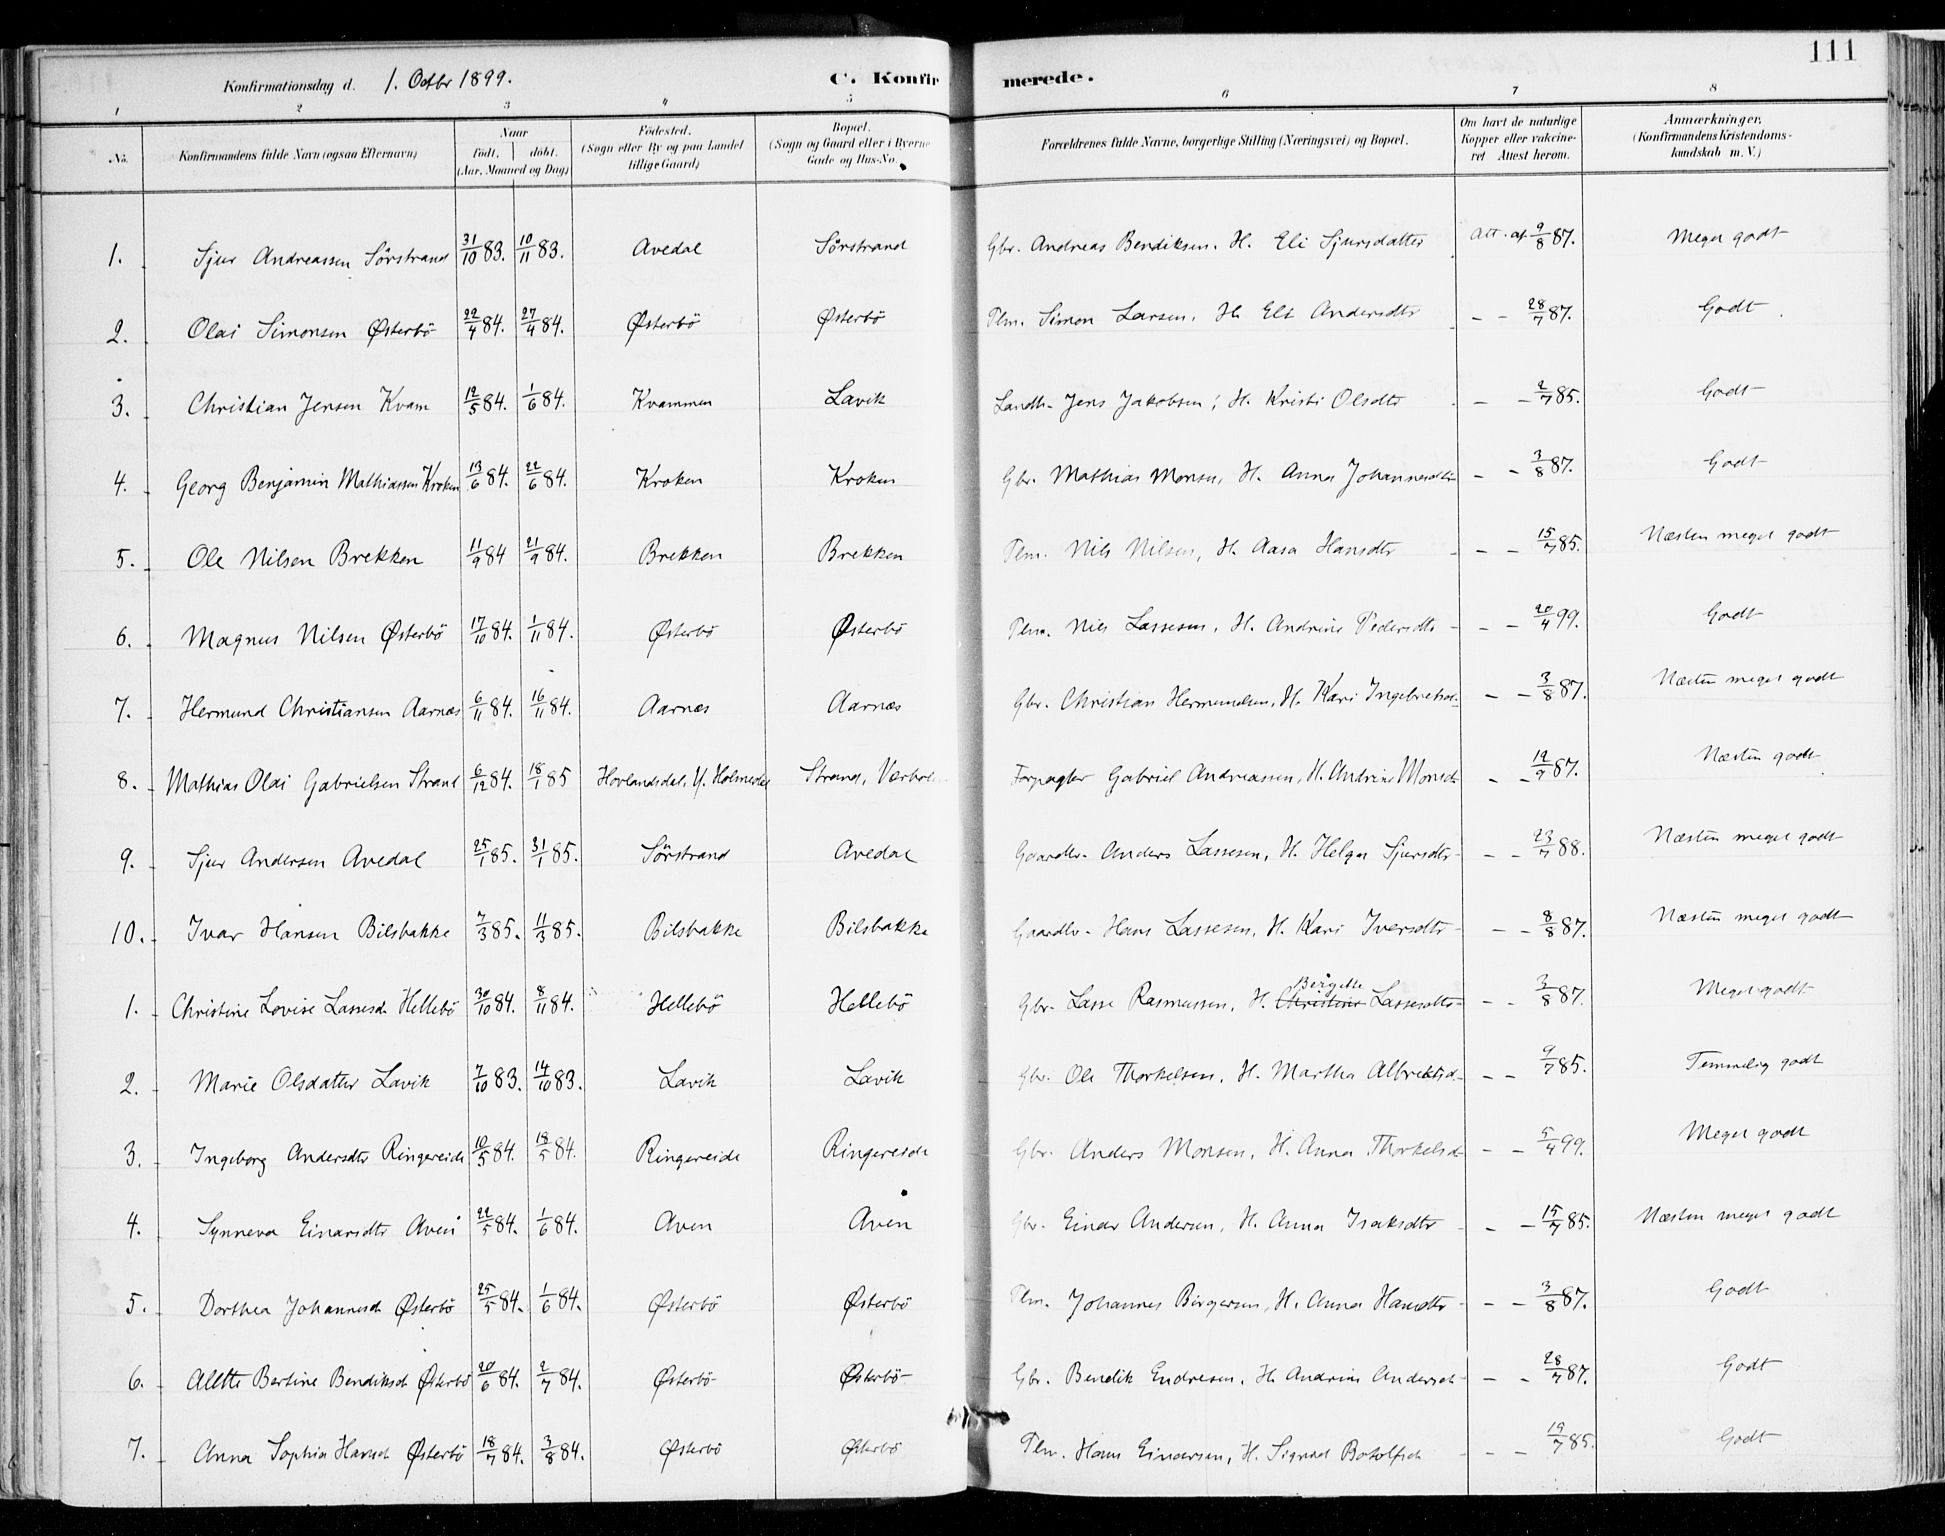 111
Konfirmationsdag d. 1. Octbr 1899. C. Konfirmerede.
1 2 3 4 5 6 7 8
No. Konfirmandens fulde Navn (ogsaa Efternavn) Naar født. døbt. (Aar, Maaned og Dag) Fødested. (Sogn eller By og paa Landet tillige Gaard) Bopæl. (Sogn og Gaard eller i Byerne Gade og Hus-No. Forældrenes fulde Navne, borgerlige Stilling (Næringsvei) og Bopæl. Om havt de naturlige Kopper eller vakcineret Attest herom. Anmærkninger. (Konfirmandens Kristendomskundskab m. V.)
1. Sjur Andreassen Sörstrand 31/10 83. 10/11 83. Avedal Sörstrand Gbr. Andreas Bendiksen. H. Eli Sjursdatter Att. af 9/8 87. Meget godt
2. Olai Simonsen Østerbö 22/4 84. 27/4 84. Østerbö Østerbö Plm. Simon Larsen, H. Eli Andersdtr - - 28/7 87. Godt
3. Christian Jensen Kvam 12/5 84. 1/6 84. Kvammen Lavik Landh. Jens Jakobsen; H. Kristi Olsdtr - - 2/7 85. Godt
4. Georg Benjamin Mathiassen Kroken 13/6 84. 22/6 84. Kroken Kroken Gbr. Mathias Monsen, H. Anna Johannesdtr - - 3/8 87. Godt
5. Ole Nilsen Brekken 11/9 84 21/9 84. Brekken Brekken Plm. Nils Nilsen, H. Aasa Hansdtr - - 15/7 85. Næsten meget godt
6. Magnus Nilsen Østerbö 17/10 84. 1/11 84. Østerbö Østerbö Plm. Nils Lassesen, H. Andrine Pedersdtr - - 20/4 99. Godt
7. Hermund Christiansen Aarnæs 6/11 84. 16/11 84. Aarnæs Aarnæs Gbr. Christian Hermundsen, H. Kari Ingebretsd. - - 3/8 87. Næsten meget godt
8. Mathias Olai Gabrielsen Strand 6/12 84. 18/1 85 Hovlandsdal, Y. Holmedal Strand, Forpagter Gabriel Andreassen, H. Andrine Monsd - - 12/9 87. Næsten godt
9. Sjur Andersen Avedal 25/1 85. 31/1 85. Sörstrand Avedal Gaardbr. Anders Lassesen, H. Helga Sjursdtr - - 23/7 88. Næsten meget godt
10. Ivar Hansen Bilsbakke 7/3 85. 11/3 85. Bilsbakke Bilsbakke Gaardbr. Hans Lassesen, H. Kari Iversdtr - - 8/8 87. Næsten meget godt
1. Christine Lovise Lassesd. Hellebö 30/10 84. 8/11 84. Hellebö Hellebö Gbr. Lasse Rasmussen, H. Christine Birgitte Lassesdtr - - 3/8 87. Meget godt
2. Marie Olsdatter Lavik 7/10 83. 14/10 83. Lavik Lavik Gbr. Ole Thorkelsen, H. Martha Albrektsd. - - 9/7 85. Temmelig godt
3. Ingeborg Andersdtr Ringereide 10/5 84. 18/5 84. Ringereide Ringereide Gbr. Anders Monsen, H. Anna Thorkelsd - - 5/4 99. Meget godt
4. Synneva Einarsdtr Aven 22/5 84. 1/6 84. Aven Aven Gbr. Einar Andersen, H. Anna Isaksdtr - - 15/7 85. Næsten meget godt
5. Dorthea Johannesd Østerbö 25/5 84. 1/6 84. Østerbö Østerbö Plm. Johannes Birgersen, H. Anna Hansdtr - - 3/8 87. Godt
6. Alette Bertine Bendiksd Østerbö 20/6 84. 2/7 84. Østerbö Østerbö Gbr. Bendik Endresen, H. Andrine Andersd - - 28/7 87. Godt
7. Anna Sophia Hansd Østerbö 18/7 84. 3/8 84. Østerbö Østerbö Plm. Hans Einarsen, H. Sigrid Botolfsd - - 19/7 85. Godt